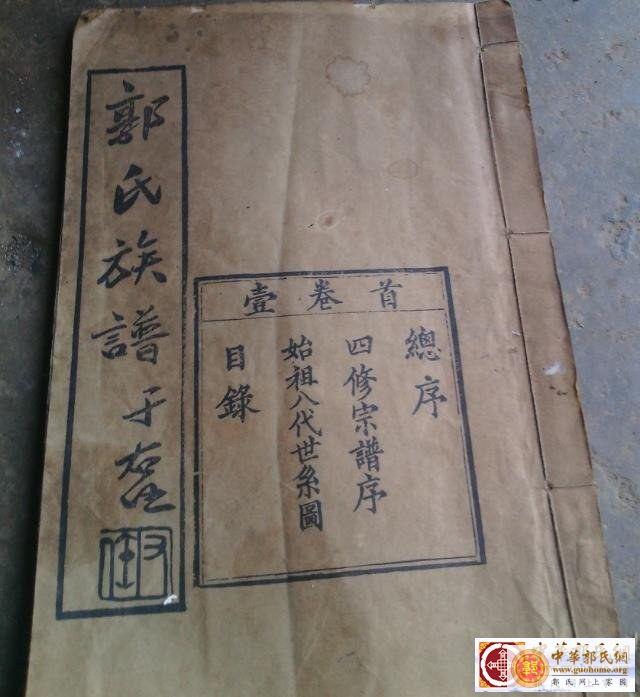 郭氏族譜 于右任
首卷壹
總序
四修宗譜序
始祖八代世系圖
目錄
中華郭氏網
www.guohome.com
郭氏網上家園